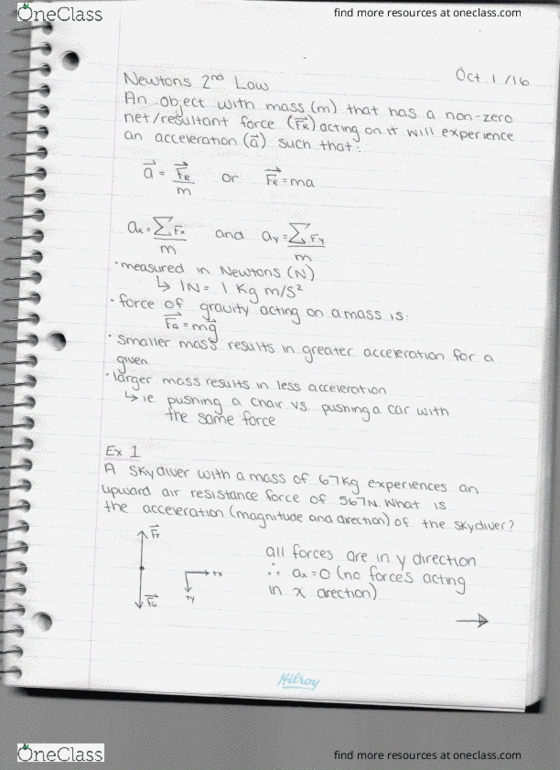 OneClass
find more resources at oneclass.com
Oct. 1/16
Newtons 2nd Law
An object with mass (m) that has a non-zero
net/resultant force (F⃗R) acting on it will experience
an acceleration (a⃗) such that:
a⃗ = F⃗R/m or F⃗R = ma
ax = ΣFx/m and ay = ΣFy/m
· measured in Newtons (N)
↳ 1N = 1 Kg m/s²
· force of gravity acting on a mass is:
F⃗G = mg⃗
· smaller mass results in greater acceleration for a
given
· larger mass results in less acceleration
↳ ie pushing a chair vs. pushing a car with
the same force
Ex 1
A skydiver with a mass of 67Kg experiences an
upward air resistance force of 567N. What is
the acceleration (magnitude and direction) of the skydiver?
F⃗r
all forces are in y direction
+x
∴ ax = 0 (no forces acting
F⃗G
+y
in x direction)
→
Hilroy
OneClass
find more resources at oneclass.com